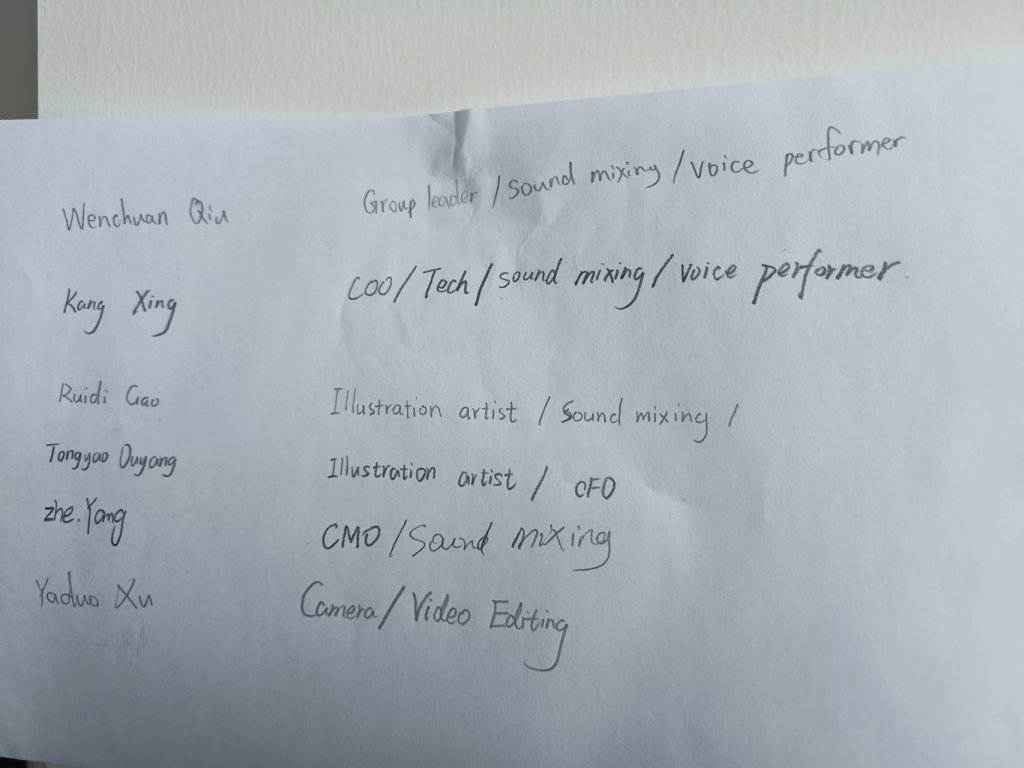 Wenchuan Qiu Group leader / sound mixing / voice performer
Kang Xing COO / Tech / sound mixing / voice performer.
Ruidi Gao Illustration artist / Sound mixing /
Tongyao Ouyang Illustration artist / CFO
zhe.Yang CMO / Sound mixing
Yaduo Xu Camera / Video Editing